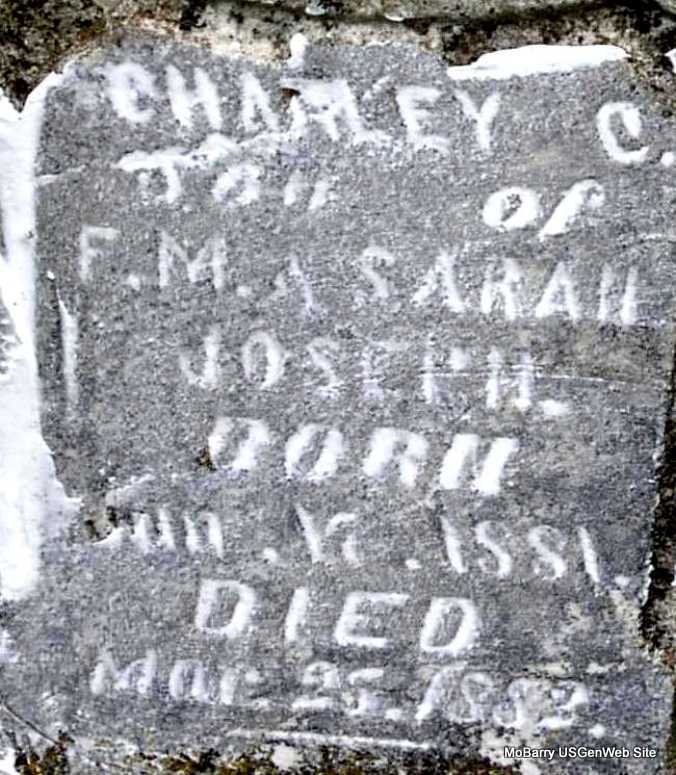 CHARLEY C.
OF
F. M. & SARAH
JOSEPH.
BORN
Jun. 1881.
DIED
Mar. 25. 1882.
MoBarry USGenWeb Site